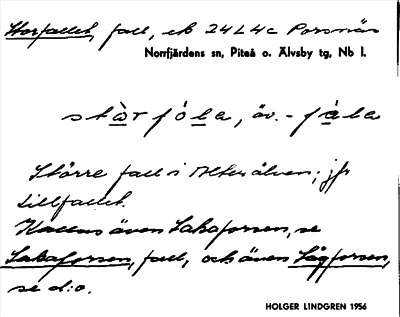 Storfallet, fall, ek 24L4c Porsnäs
Norrfjärdens sn, Piteå o. Älvsby tg, Nb l.
stòrfóla, äv. -fàla
Större fall i Alterälven; jfr
Lillfallet.
Kallas även Lakaforsen, se
Lakaforsen, fall, och även Lågforsen,
se d:o.
HOLGER LINDGREN 1956